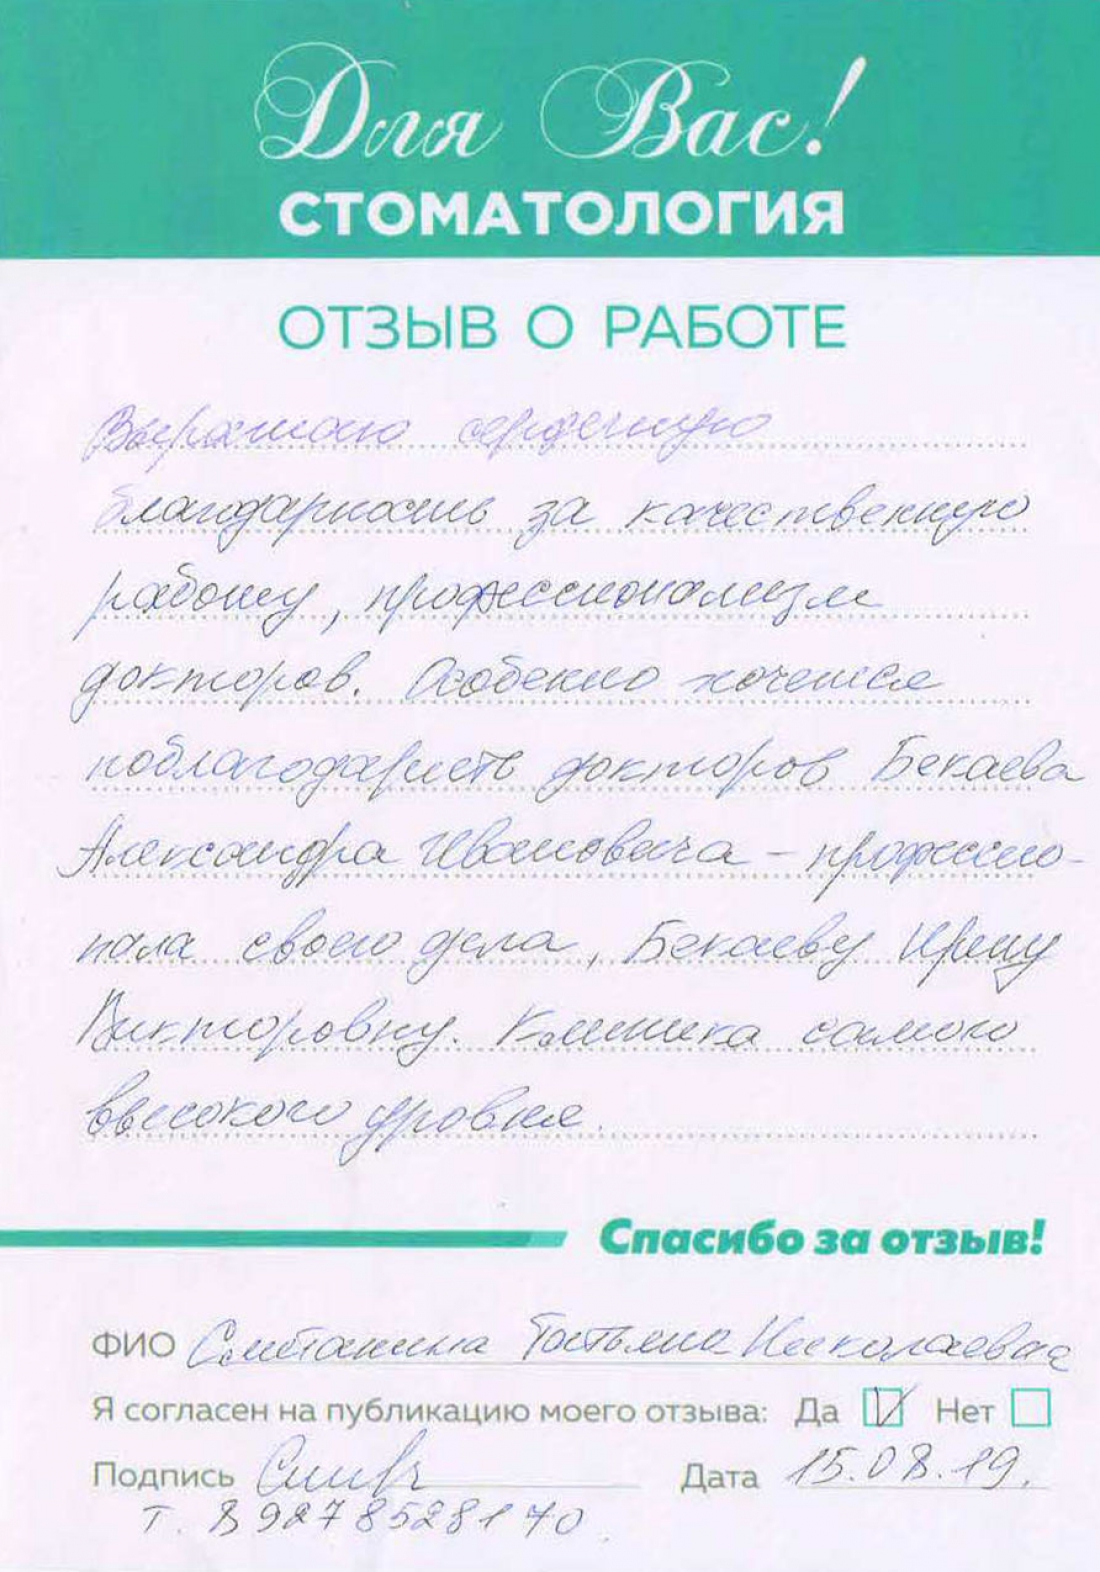 Для Вас!
СТОМАТОЛОГИЯ
ОТЗЫВ О РАБОТЕ
Выражаю сердечную
благодарность за качественную
работу, профессионализм
докторов. Особенно хочется
поблагодарить докторов Бекаева
Александра Ивановича – профессио-
нала своего дела, Бекаеву Ирину
Викторовну. Клиника самого
высокого уровня.
Спасибо за отзыв!
ФИО Сметанина Татьяна Николаевна
Я согласен на публикацию моего отзыва: Да V Нет
Подпись Дата 15.08.19.
т. 89278528170